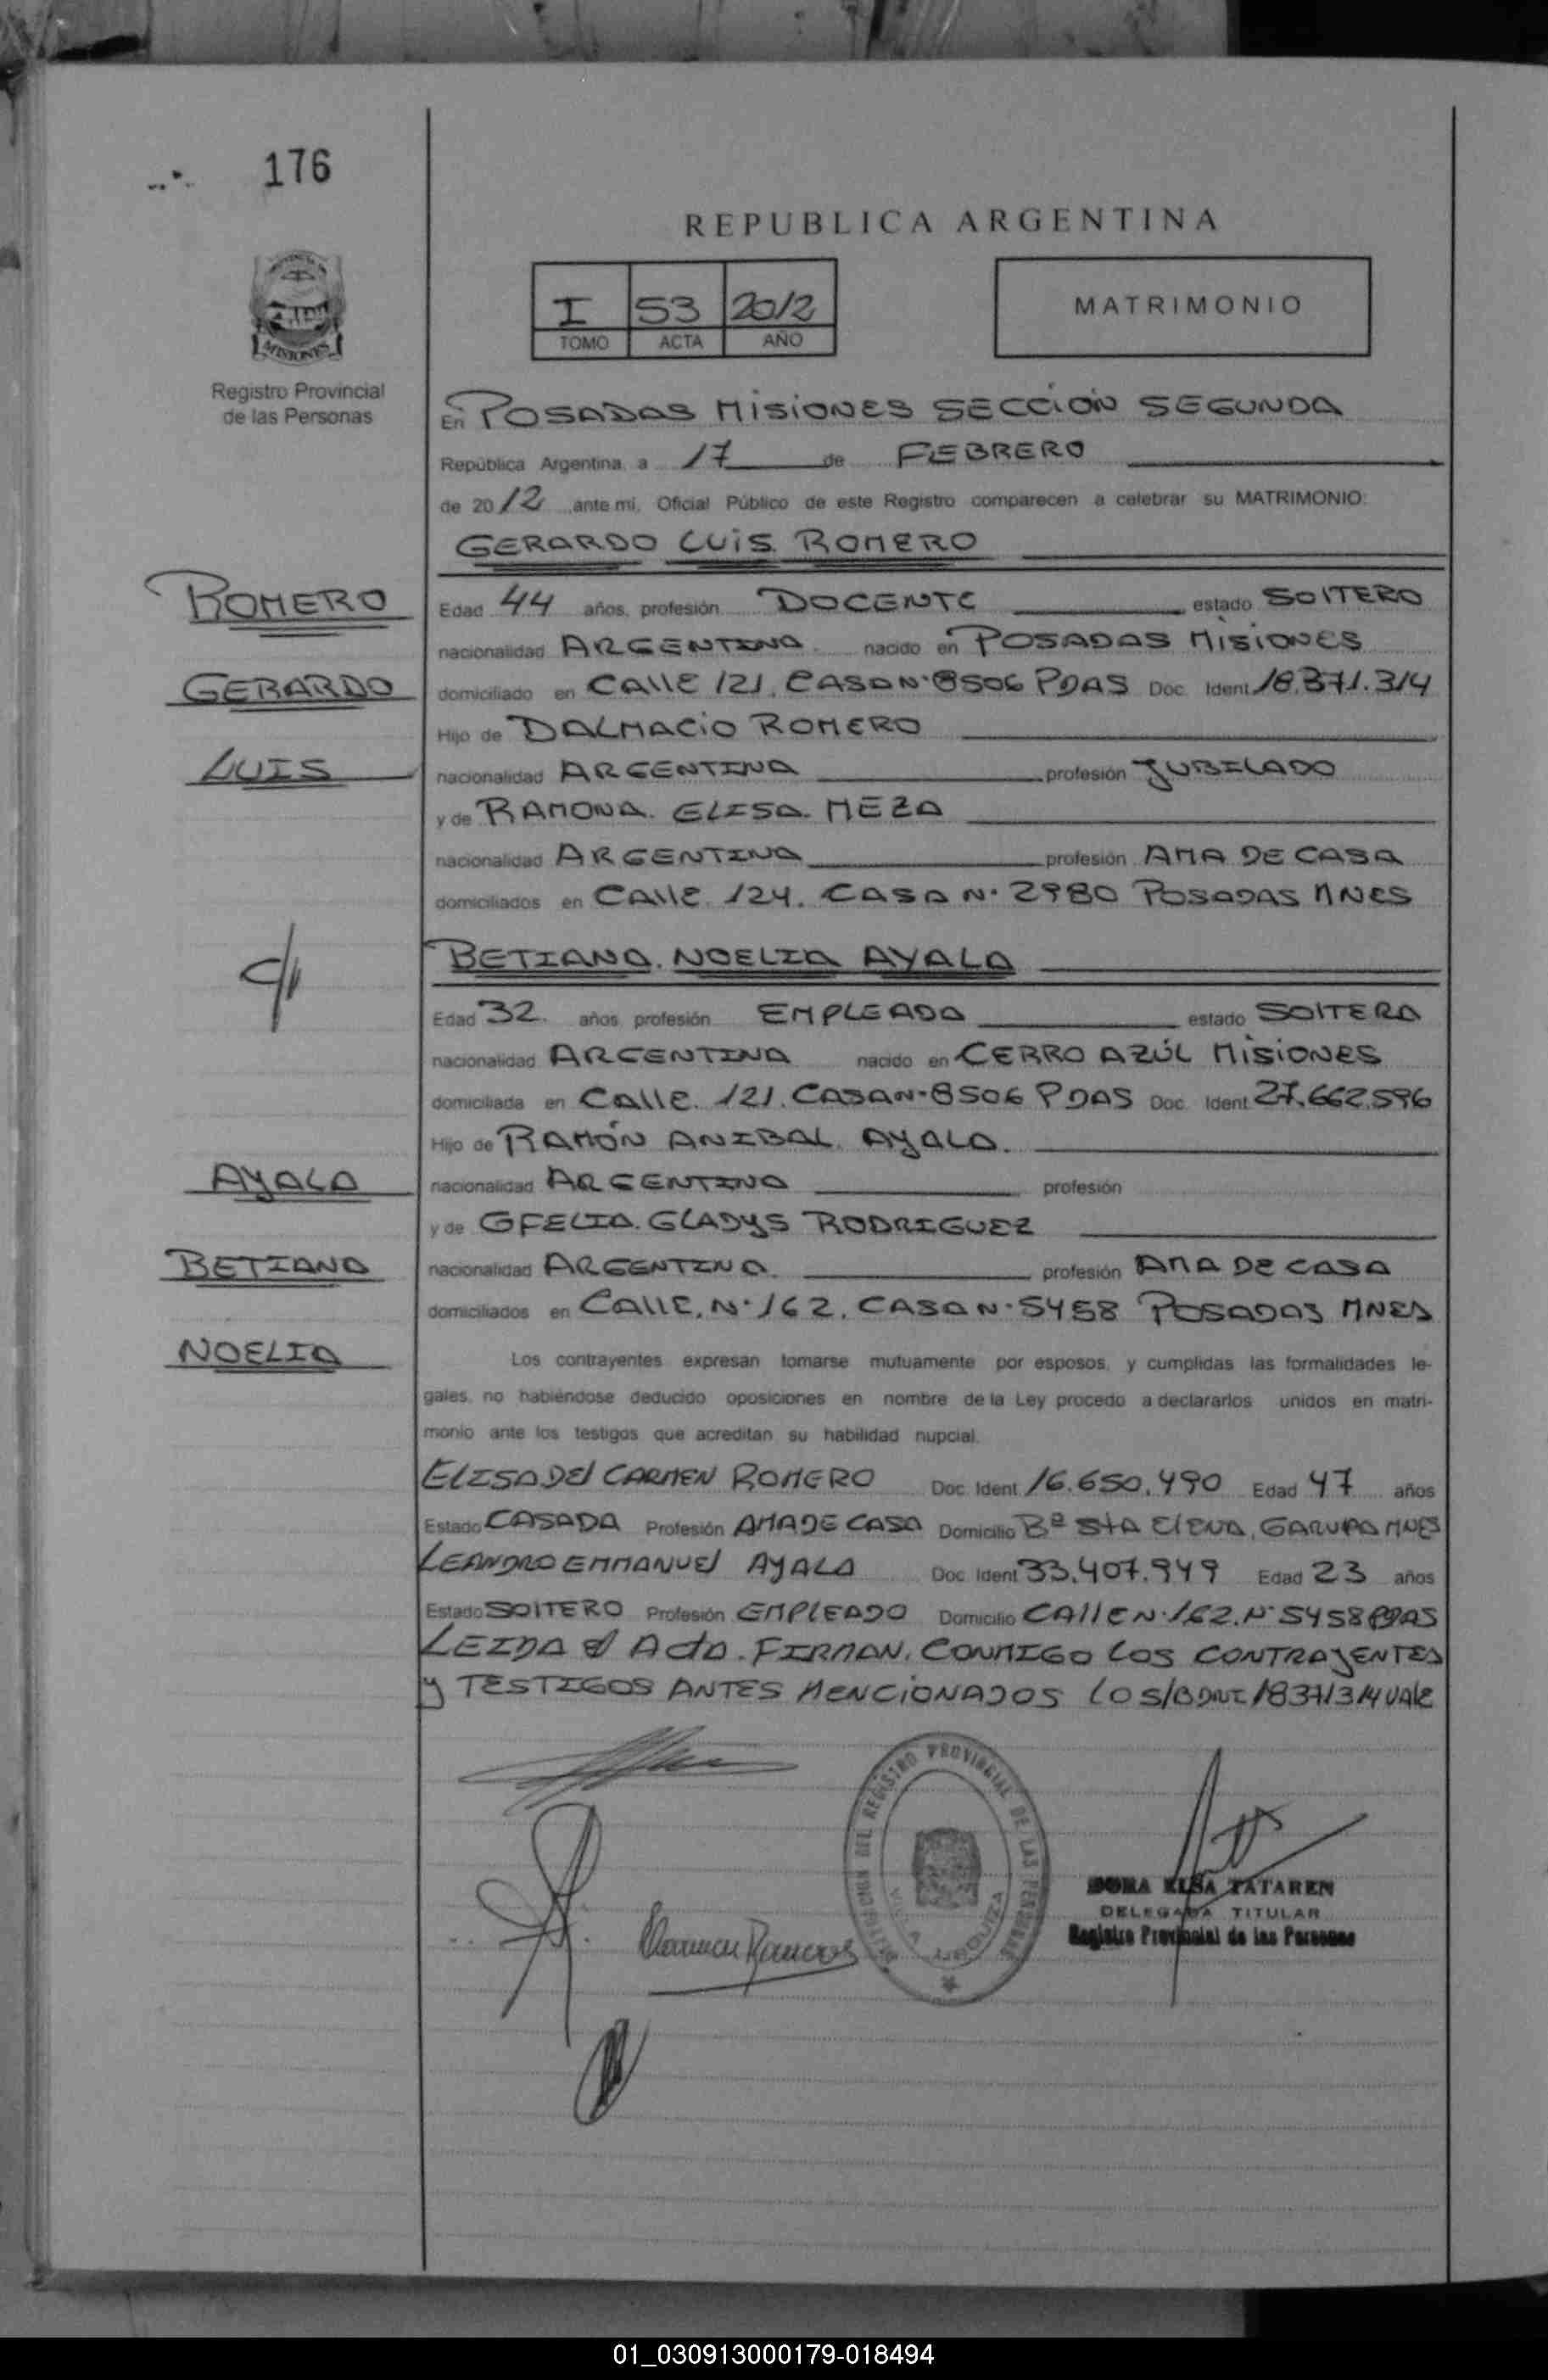 176
REPUBLICA ARGENTINA
MATRIMONIO
I 53 2012
TOMO ACTA AÑO
MISIONES
Registro Provincial
de las Personas
En POSADAS MISIONES SECCIÓN SEGUNDA
República Argentina a 17 de FEBRERO
de 2012 ante mi, Oficial Público de este Registro comparecen a celebrar su MATRIMONIO:
GERARDO LUIS ROMERO
ROMERO
Edad 44 años, profesión DOCENTE estado SOLTERO
nacionalidad ARGENTINA nacido en POSADAS MISIONES
GERARDO
domiciliado en CALLE 121. CASA N° 8506 PDAS Doc. Ident. 18.371.314
Hijo de DALMACIO ROMERO
LUIS
nacionalidad ARGENTINA profesión JUBILADO
y de RAMONA ELISA MEZA
nacionalidad ARGENTINA profesión AMA DE CASA
domiciliados en CALLE 124. CASA N° 2980 POSADAS MNES
C/
BETIANA NOELIA AYALA
Edad 32 años, profesión EMPLEADA estado SOLTERA
nacionalidad ARGENTINA nacido en CERRO AZÚL MISIONES
domiciliada en CALLE 121. CASA N° 8506 PDAS Doc. Ident. 27.662.596
Hijo de RAMÓN ANIBAL AYALA
AYALA
nacionalidad ARGENTINA profesión
y de GFELIA GLADYS RODRIGUEZ
BETIANA
nacionalidad ARGENTINA profesión AMA DE CASA
domiciliados en CALLE N° 162. CASA N° 5458 POSADAS MNES
NOELIA
Los contrayentes expresan tomarse mutuamente por esposos, y cumplidas las formalidades le-
gales, no habiéndose deducido oposiciones en nombre de la Ley procedo a declararlos unidos en matri-
monio ante los testigos que acreditan su habilidad nupcial.
ELISA DEL CARMEN ROMERO Doc. Ident. 16.650.490 Edad 47 años
Estado CASADA Profesión AMA DE CASA Domicilio Bº STA ELENA, GARUPA MNES
LEANDRO EMMANUEL AYALA Doc. Ident. 33.407.949 Edad 23 años
Estado SOLTERO Profesión EMPLEADO Domicilio CALLE N° 162. N° 5458 PDAS
LEIDA el ACTA. FIRMAN, CONMIGO LOS CONTRAYENTES
Y TESTIGOS ANTES MENCIONADOS LO S/B DNI 18371314 VALE
REGISTRO PROVINCIAL DE LAS PERSONAS
VILLA URQUIZA
DORA ELSA TATAREN
DELEGADA TITULAR
Registro Provincial de las Personas
01_030913000179-018494